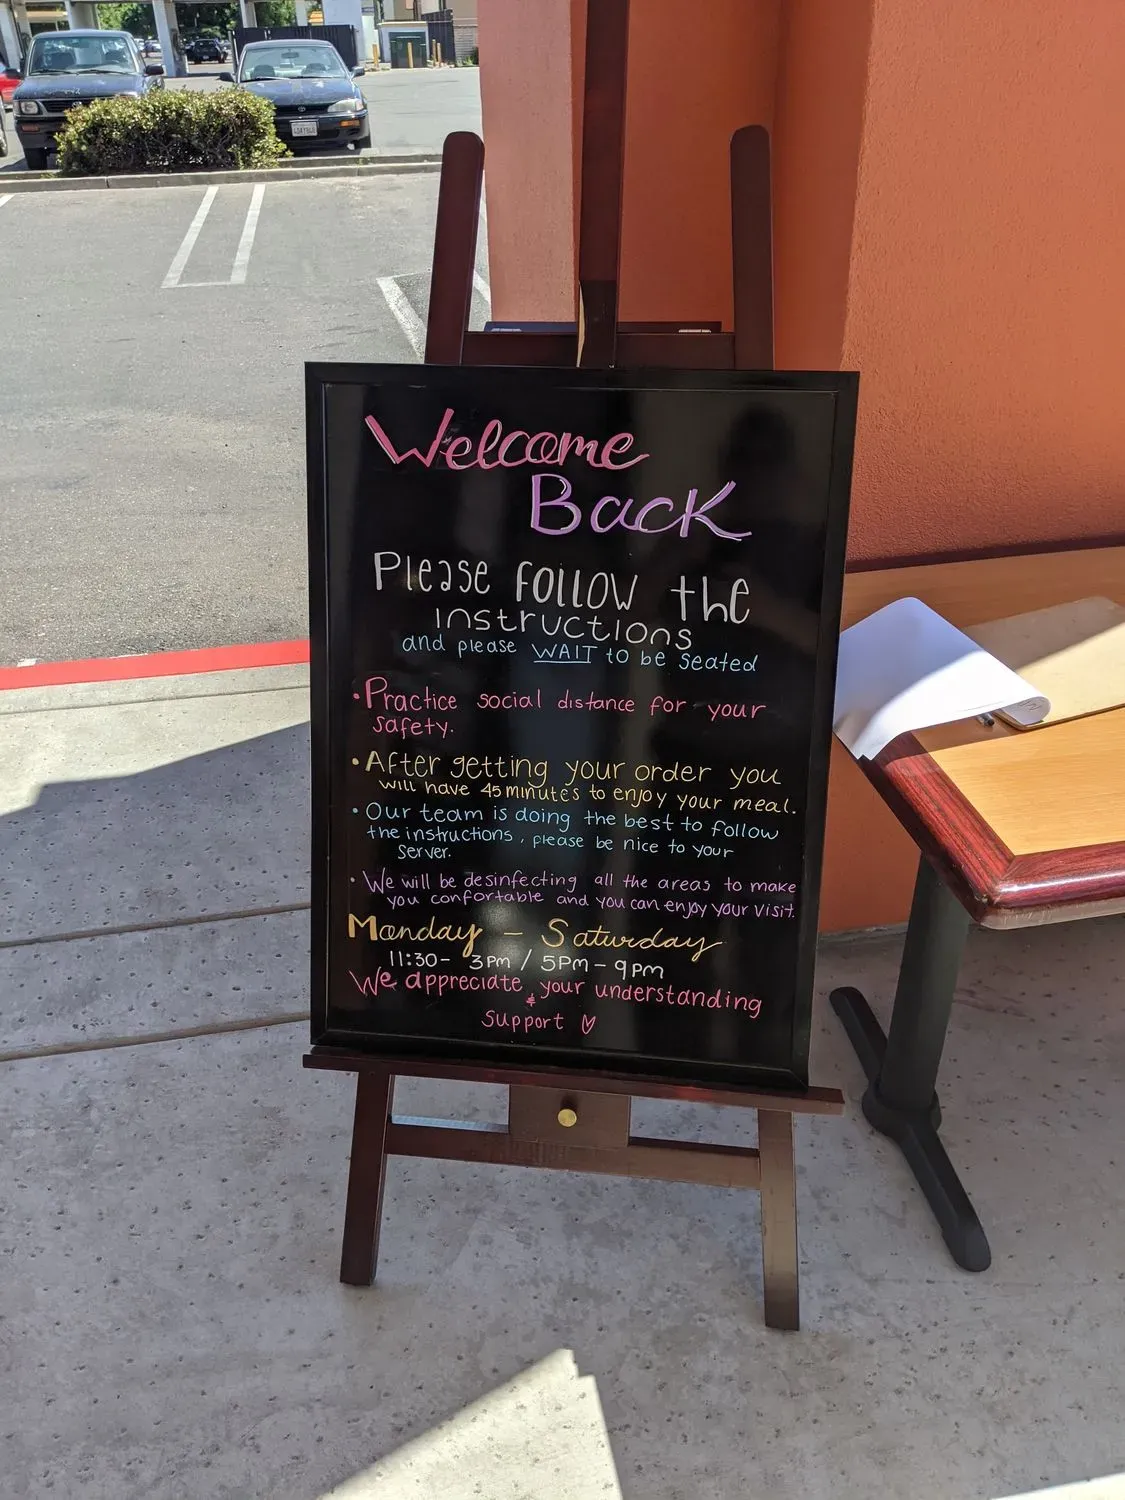 Welcome
Back
Please follow the
instructions
and please WAIT to be seated
• Practice social distance for your
safety.
• After getting your order you
will have 45 minutes to enjoy your meal.
• Our team is doing the best to follow
the instructions, please be nice to your
server.
• We will be desinfecting all the areas to make
you confortable and you can enjoy your visit.
Monday – Saturday
11:30 - 3pm / 5pm - 9pm
We appreciate your understanding
&
support ♡